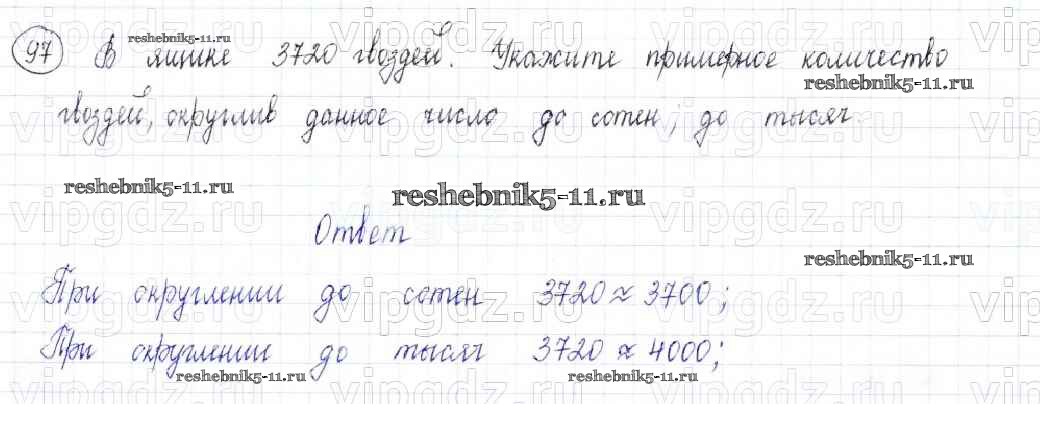 reshebnik5-11.ru
97 В ящике 3720 гвоздей. Укажите примерное количество
reshebnik5-11.ru
гвоздей, округлив данное число до сотен; до тысяч.
reshebnik5-11.ru
reshebnik5-11.ru
Ответ
reshebnik5-11.ru
При округлении до сотен 3720 ≈ 3700;
При округлении до тысяч 3720 ≈ 4000;
reshebnik5-11.ru
reshebnik5-11.ru